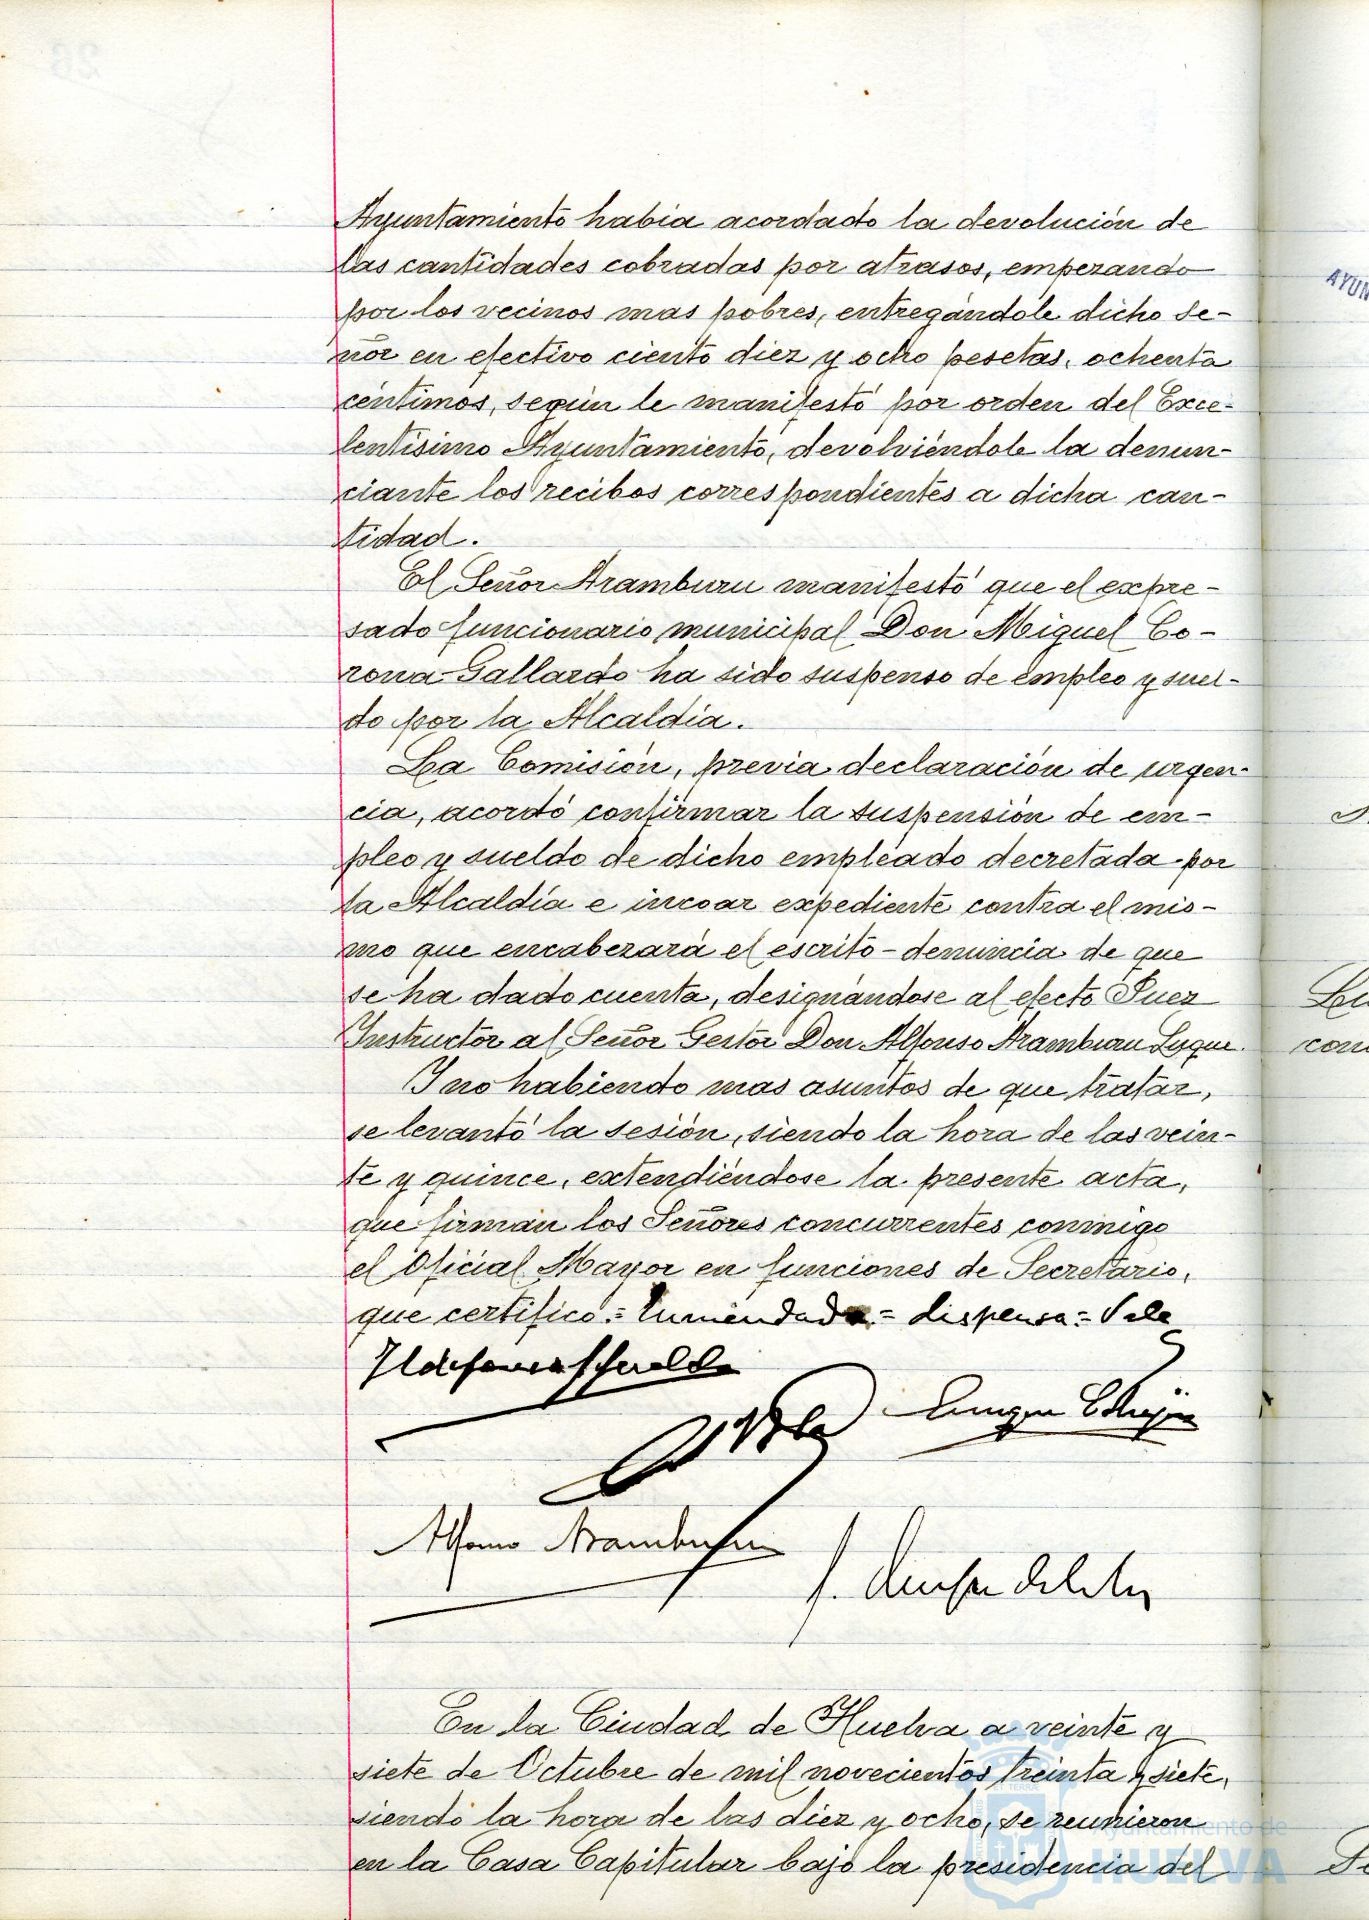 Ayuntamiento había acordado la devolución de
las cantidades cobradas por atrasos, empezando
por los vecinos mas pobres, entregándole dicho Se-
ñor en efectivo ciento diez y ocho pesetas, ochenta
céntimos, según le manifestó por orden del Exce-
lentísimo Ayuntamiento, devolviéndole la denun-
ciante los recibos correspondientes a dicha can-
tidad.
El Señor Aramburu manifestó que el expre-
sado funcionario municipal Don Miguel Co-
rona Gallardo ha sido suspenso de empleo y suel-
do por la Alcaldía.
La Comisión, previa declaración de urgen-
cia, acordó confirmar la suspensión de em-
pleo y sueldo de dicho empleado decretada por
la Alcaldía e incoar expediente contra el mis-
mo que encabezará el escrito-denuncia de que
se ha dado cuenta, designándose al efecto Juez
Instructor al Señor Gestor Don Alfonso Aramburu Luque.
Y no habiendo mas asuntos de que tratar,
se levantó la sesión, siendo la hora de las vein-
te y quince, extendiéndose la presente acta,
que firman los Señores concurrentes conmigo
el Oficial Mayor en funciones de Secretario,
que certifico.= Enmendado= dispensa= Vale
Alfonso Aramburu
En la Ciudad de Huelva a veinte y
siete de Octubre de mil novecientos treinta y siete,
siendo la hora de las diez y ocho, se reunieron
en la Casa Capitular bajo la presidencia del
Ayuntamiento de
HUELVA
26
AYUN